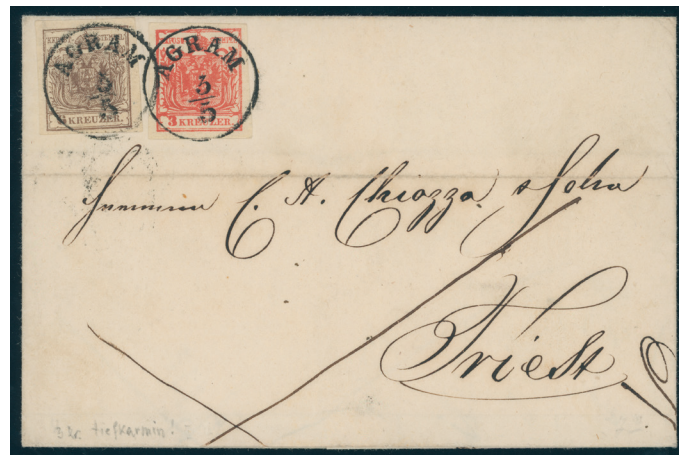 AGRAM
5/5
KREUZER.
AGRAM
5/5
3 KREUZER.
Herren C. A. Chiozza & Sohn
Triest
3 kr. tiefkarmin!